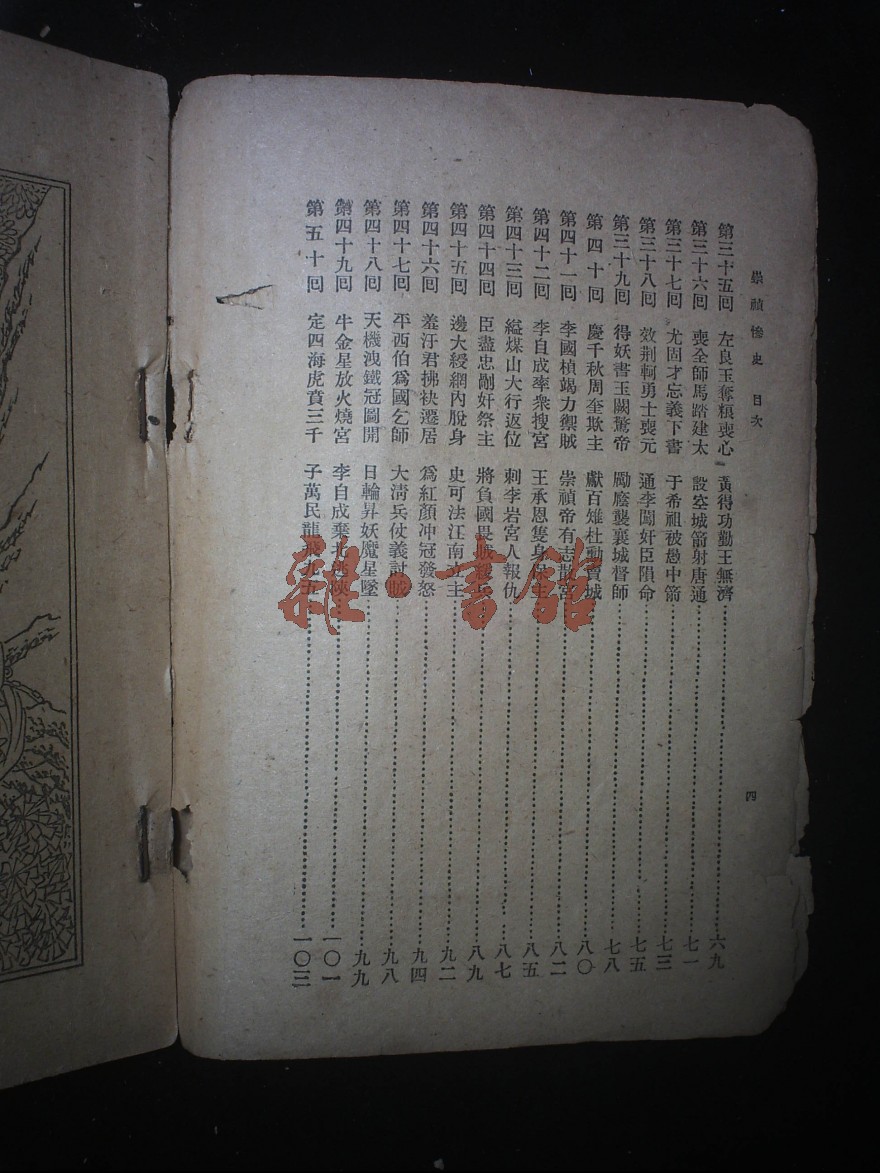 崇禎慘史 目次
四
第三十五回 左良玉奪糧喪心 黃得功勤王無濟 六九
第三十六回 喪全師馬踏建太 設空城箭射唐通 七一
第三十七回 尤固才忘義下書 于希祖被懸中箭 七三
第三十八回 效荊軻勇士喪元 通李闖奸臣隕命 七五
第三十九回 得妖書玉闕驚帝 勵廕襲襄城督師 七八
第四十回 慶千秋周奎欺主 獻百雉杜勳賣城 八〇
第四十一回 李國楨竭力禦賊 崇禎帝有志散宮 八二
第四十二回 李自成率衆搜宮 王承恩隻身保主 八五
第四十三回 縊煤山大行返位 刺李岩宮人報仇 八七
第四十四回 臣盡忠剮奸祭主 將負國畏賊緩兵 八九
第四十五回 邊大綬網內脫身 史可法江南立主 九二
第四十六回 羞汙君拂袂遷居 爲紅顏冲冠發怒 九四
第四十七回 平西伯爲國乞師 大淸兵仗義討賊 九八
第四十八回 天機洩鐵冠圖開 日輪昇妖魔星墜 九九
第四十九回 牛金星放火燒宮 李自成棄北逃陝 一〇一
第五十回 定四海虎賁三千 子萬民龍飛九五 一〇三
雜·書館